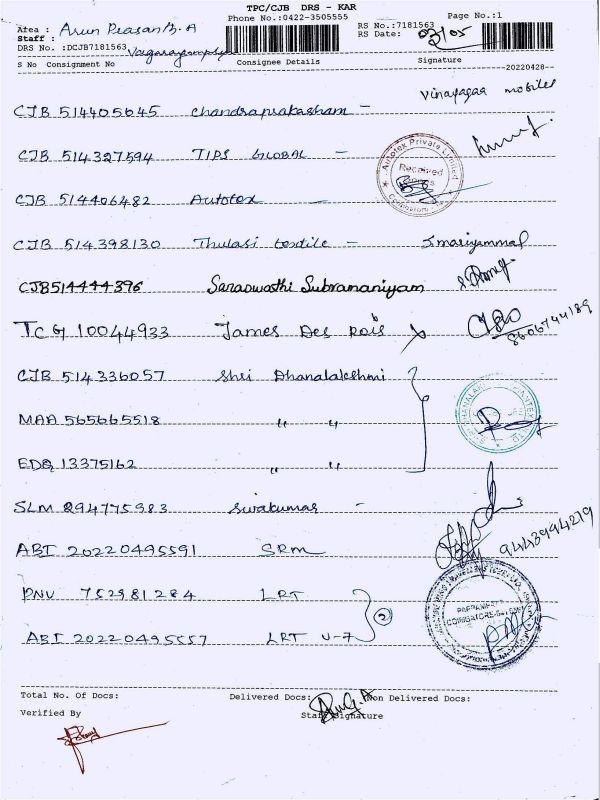 TPC/CJB DRS - KAR
Phone No.:0422-3505555 Page No.:1
Area : Arun Prasanth. A RS No.:7181563
Staff : RS Date: 03/05
DRS No. :DCJB7181563
S No Consignment No Consignee Details Signature
--20220428--
Vinayagaa mobiles
CJB 514405645 Chandraprakasham -
CJB 514327594 TIPS GLOBAL -
Autotex Private Limited
Received
Coimbatore
CJB 514406482 Autotex -
CJB 514398130 Thulasi textile - J.mariyammal
CJB514444396 Saraswathi Subramaniyam
TCG 10044933 James Des Rois
8606744189
CJB 514336057 Shri Dhanalakshmi
MAA 565665518 " "
EDQ 13375162 " "
SLM 294775983 Sivakumar -
9443994279
ABI 20220495591 SRM
PNV 752981284 LRT
2
ABI 20220495557 LRT U-7
Total No. Of Docs: Delivered Docs: Non Delivered Docs:
Verified By Staff Signature